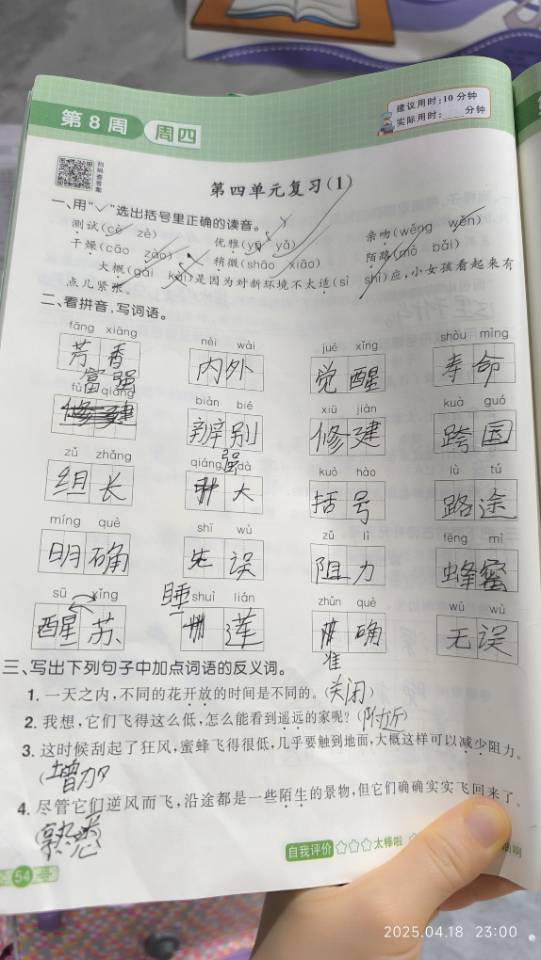 建议用时:10分钟
实际用时:____分钟
第8周 周四
扫码查答案
第四单元复习(1)
一、用“✓”选出括号里正确的读音。
测试(cè zè) 优雅(yǔ yǎ) 亲吻(wěng wěn)
干燥(cāo zào) 稍微(shāo xiāo) 陌路(mò bǎi)
大概(gài kài)是因为对新环境不太适(sì shì)应,小女孩看起来有
点儿紧张。
二、看拼音,写词语。
fāng xiāng nèi wài jué xǐng shòu mìng
芳香 内外 觉醒 寿命
富强
fù qiáng biàn bié xiū jiàn kuà guó
修建 辨别 修建 跨国
zǔ zhǎng qiáng dà kuò hào lù tú
强
组长 大 括号 路途
míng què shī wù zǔ lì fēng mì
明确 失误 阻力 蜂蜜
sū xǐng shuì lián zhǔn què wú wù
睡
醒苏 莲 确 无误
准
三、写出下列句子中加点词语的反义词。
1. 一天之内,不同的花开放的时间是不同的。(关闭)
2. 我想,它们飞得这么低,怎么能看到遥远的家呢?(附近)
3. 这时候刮起了狂风,蜜蜂飞得很低,几乎要触到地面,大概这样可以减少阻力。
(增加)
4. 尽管它们逆风而飞,沿途都是一些陌生的景物,但它们确确实实飞回来了。
熟悉
54
自我评价 ☆☆☆太棒啦
2025.04.18 23:00